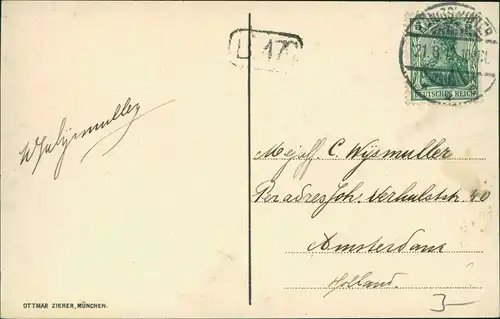 KÖNIGSWINTER
21. 8.
DEUTSCHES REICH
B. 17
Wysmuller
Mejoff. C. Wijsmuller
Per adres Joh. Verhulststr. 40
Amsterdam
Holland.
3-
OTTMAR ZIEHER, MÜNCHEN.